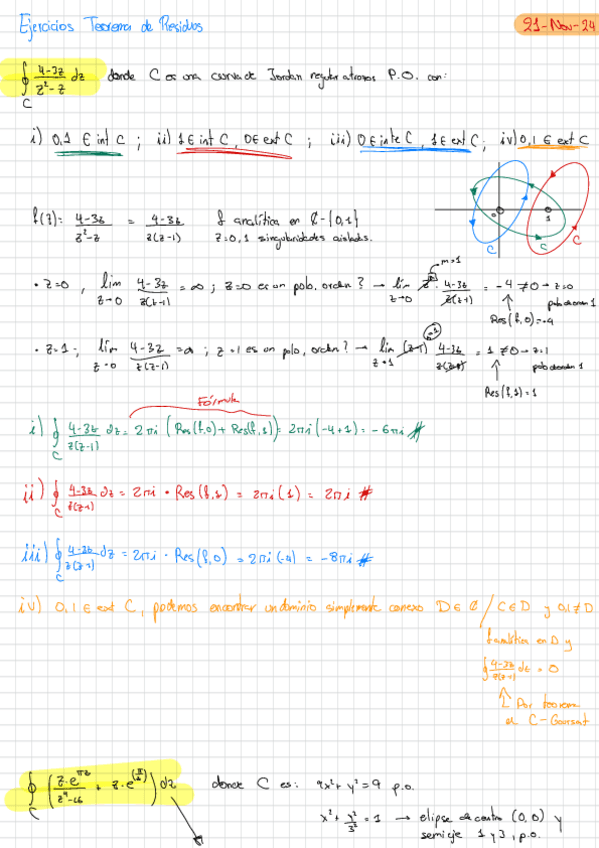 Ejercicios Teorema de Residuos
21-Nov-24
∮_C (4-3z)/(z²-z) dz donde C es una curva de Jordan regular a trozos P.O. con:
i) 0,1 ∈ int C ; ii) 1 ∈ int C, 0 ∈ ext C ; iii) 0 ∈ inte C, 1 ∈ ext C ; iv) 0,1 ∈ ext C
0 1
C C C
f(z) = (4-3z)/(z²-z) = (4-3z)/(z(z-1)) f analítica en ℂ-{0,1}
z=0,1 singularidades aisladas.
m=1
• z=0, lim_{z→0} (4-3z)/(z(z-1)) = ∞ ; z=0 es un polo, orden? → lim_{z→0} z · (4-3z)/(z(z-1)) = -4 ≠ 0 → z=0 polo de orden 1
Res(f,0)=-4
• z=1 ; lim_{z→0} (4-3z)/(z(z-1)) = ∞ ; z=1 es un polo, orden? → lim_{z→1} (z-1)^{=1} (4-3z)/(z(z-1)) = 1 ≠ 0 → z=1 polo de orden 1
Res(f,1)=1
Fórmula
i) ∮_C (4-3z)/(z(z-1)) dz = 2πi (Res(f,0) + Res(f,1)) = 2πi (-4+1) = -6πi #
ii) ∮_C (4-3z)/(z(z-1)) dz = 2πi • Res(f,1) = 2πi (1) = 2πi #
iii) ∮_C (4-3z)/(z(z-1)) dz = 2πi · Res(f,0) = 2πi (-4) = -8πi #
iv) 0,1 ∈ ext C, podemos encontrar un dominio simplemente conexo D ∈ ℂ / C ∈ D y 0,1 ∉ D
f analítica en D y
∮ (4-3z)/(z(z-1)) dz = 0
Por teorema
de C-Goursat
∮_C ( z·e^{πz}/(z⁴-16) + z·e^{(π/z)} ) dz donde C es: 9x²+y²=9 p.o.
x² + y²/3² = 1 → elipse de centro (0,0) y
semieje 1 y 3, p.o.